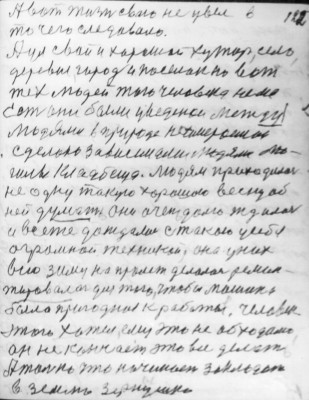 А вот таких свело не цвел в 122
то чего следовало.
А ул свой и хороший хутор, село,
деревня город и поселок но вот
тех людей того человека нема
сот они были цведеной между
людями в природе не
сделано зависимали людям мо-
гила Кладбеща. Людям приходилося
не одну такую хорошою весну об
ней думать, они очен долго ждалися
и все те дождалис с такою у себя
огромной техникой, она у них
всю зиму на пролет делалося ремон-
тировалос для того, чтобы машина
была пригодная к работы, человек
этого хотел, ему это не обходимо
он не кончает это все делать
А только что начинает закладать
в земль зернушко